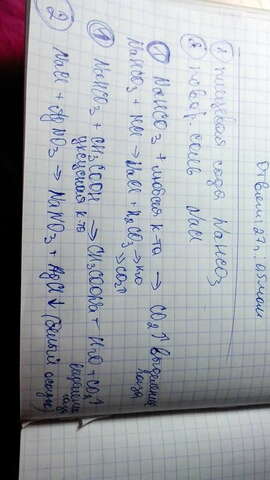 Ответ: 27 л.
① пищевая сода NaHCO3
② повар. соль NaCl
① NaHCO3 + любая к-та → CO2↑ выделение газа
NaHCO3 + HCl → NaCl + H2CO3 → H2O → CO2↑
① NaHCO3 + CH3COOH → CH3COONa + H2O + CO2↑
уксусная к-та
② NaCl + AgNO3 → NaNO3 + AgCl↓ (белый осадок)